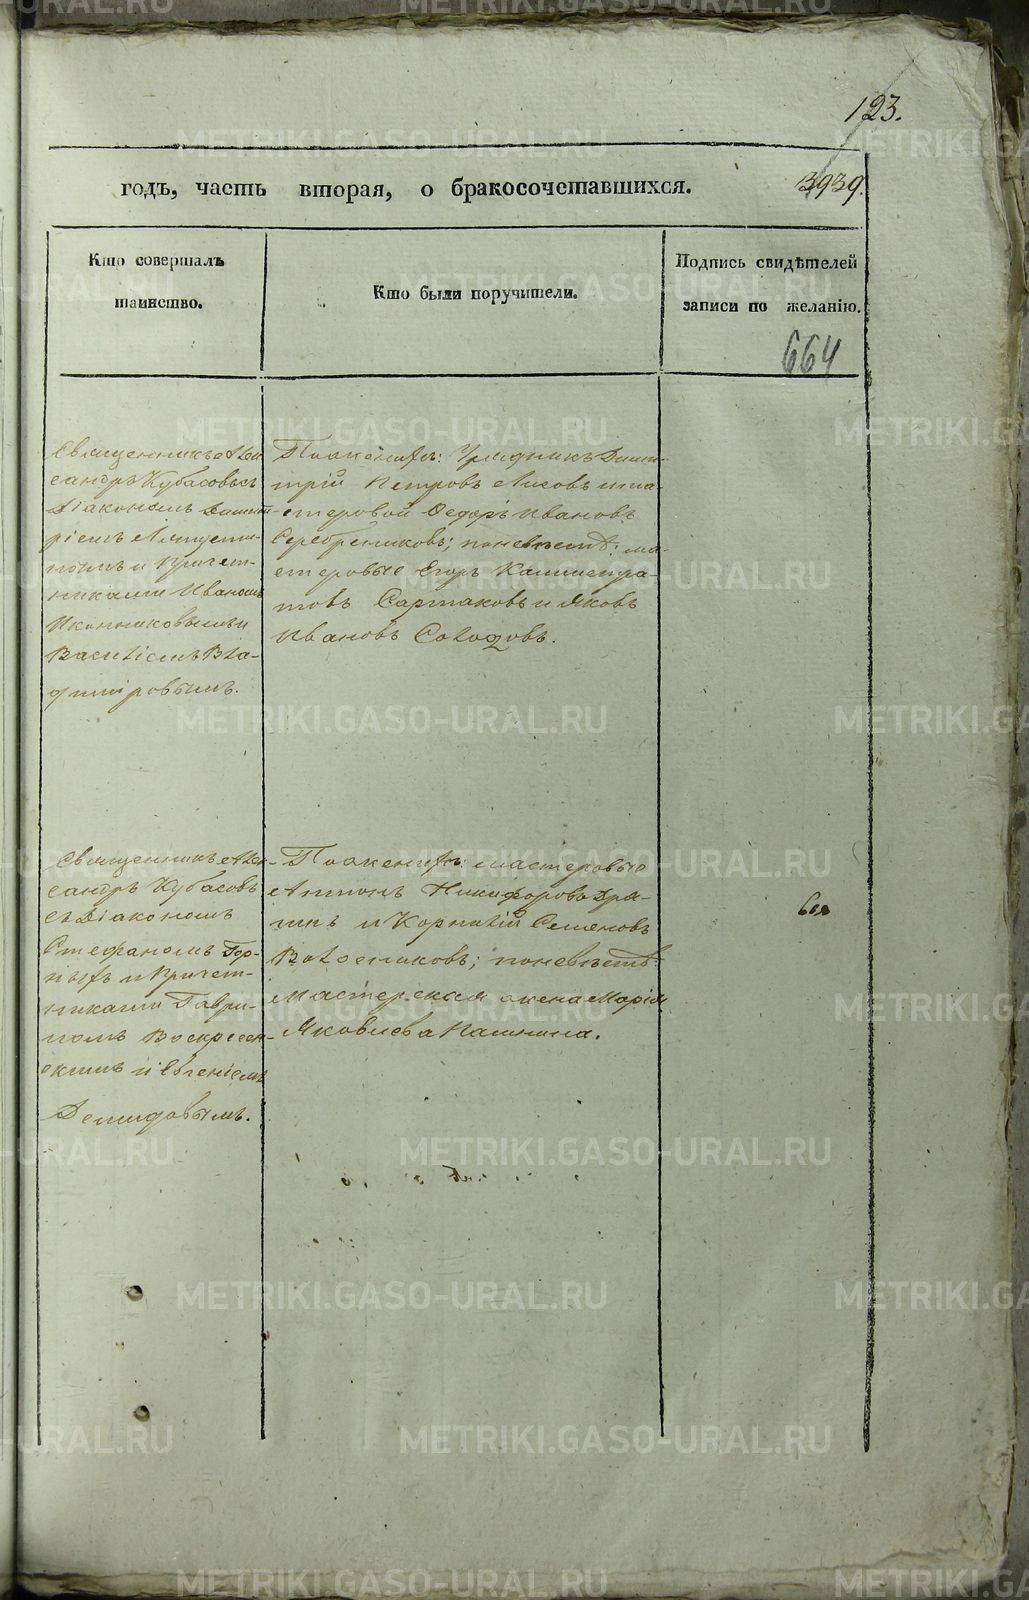 123.
годъ, часть вторая, о бракосочетавшихся.
3939.
Кто совершалъ
таинство.
Кто были поручители.
Подпись свидѣтелей
записи по желанію.
664
Священникъ Алек
сандръ Кубасовъ съ
Діакономъ Димит-
ріемъ
нымъ и Причет-
никами Иваномъ
Иконниковымъ и
Василіемъ Вла-
диміровымъ.
По женихѣ: Урядникъ Дими-
трій Петровъ Лисовъ и ма-
стеровой Ѳедоръ Ивановъ
Серебрениковъ; по невѣстѣ: ма-
стеровые Егоръ Калистра-
товъ Сартаковъ и Яковъ
Ивановъ
Священникъ Алек-
сандръ Кубасовъ
съ Діакономъ
Стефаномъ Гор-
ныхъ и Причет-
никами Гаври-
ломъ Воскресен-
скимъ и Евгеніемъ
Демидовымъ.
По женихѣ: мастеровые
Антонъ Никифоровъ
и Корнилій Семеновъ
по невѣстѣ:
мастерская жена Марія
Яковлева
METRIKI.GASO-URAL.RU